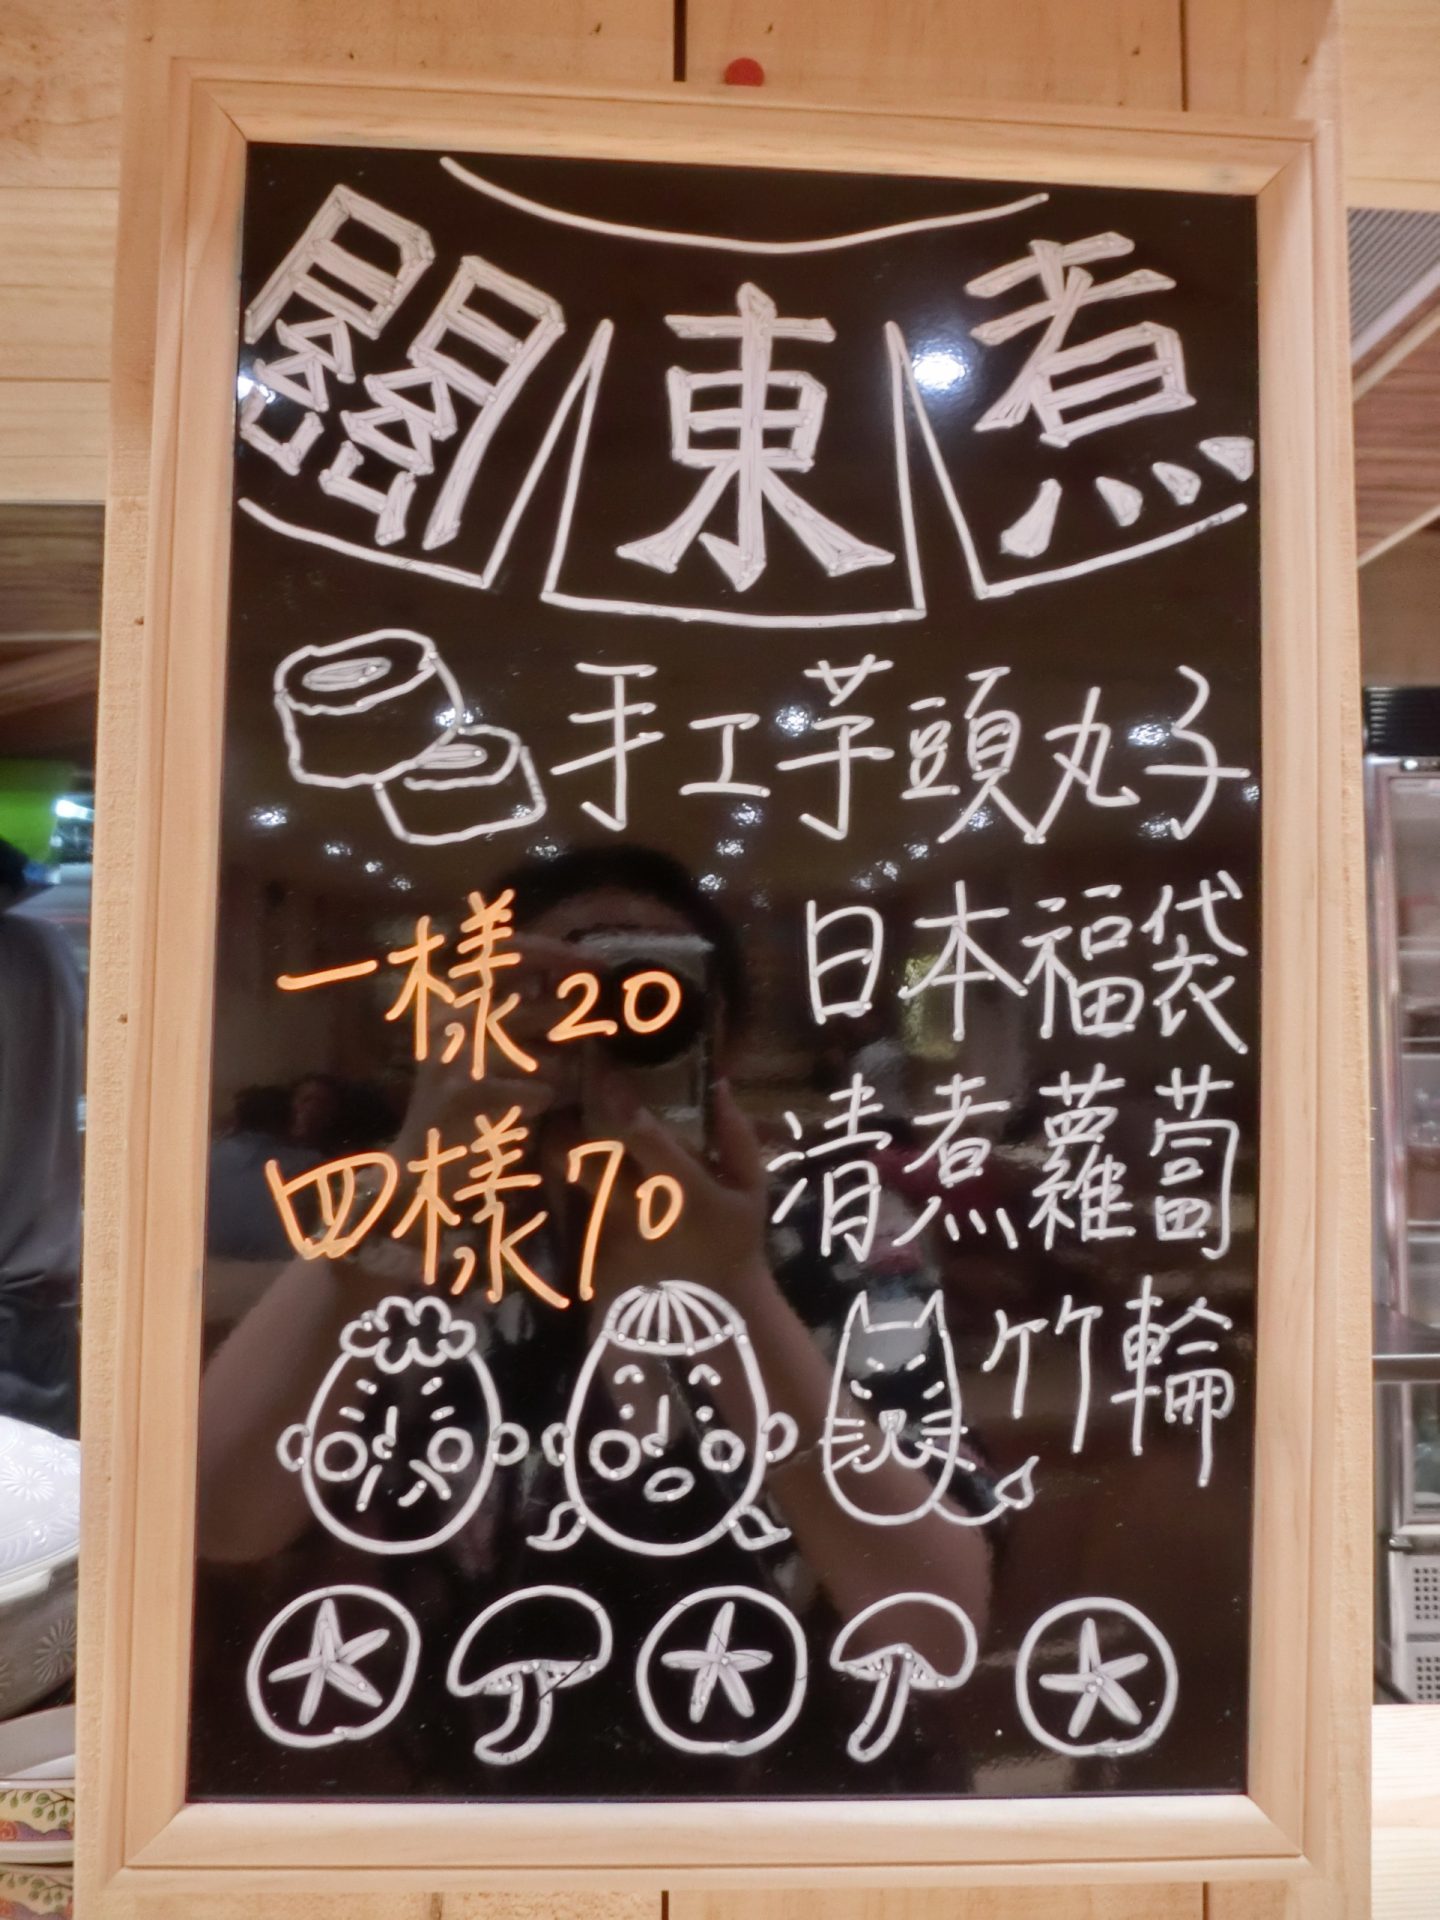 關東煮
手工芋頭丸子
日本福袋
一樣20
清煮蘿蔔
四樣70
竹輪